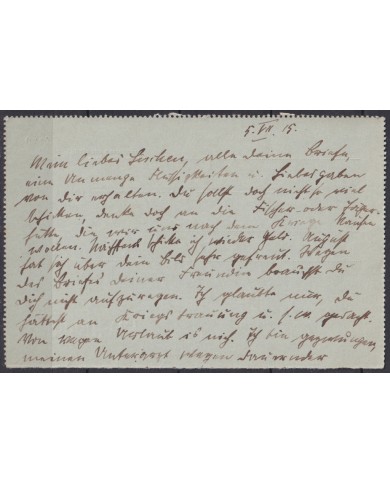 5. VII. 15.
Mein liebes Lieschen, alle deine Briefe,
eine Unmenge Flüssigkeiten u. Liebesgaben
von dir erhalten. Du sollst doch nicht so viel
schicken, denke doch an die Fischer- oder Jäger-
hütte, die wir uns nach dem Kriege kaufen
wollen. Nächstens schicke ich wieder Geld. August
hat sich über dein Bild sehr gefreut. Wegen
des Briefes deiner Freundin brauchst du
dich nicht aufzuregen. Ich glaubte nur, du
hättest an Kriegstrauung u. s. w. gedacht.
Von wegen Urlaub is nich. Ich bin gezwungen,
meinen Unterarzt wegen dauernder